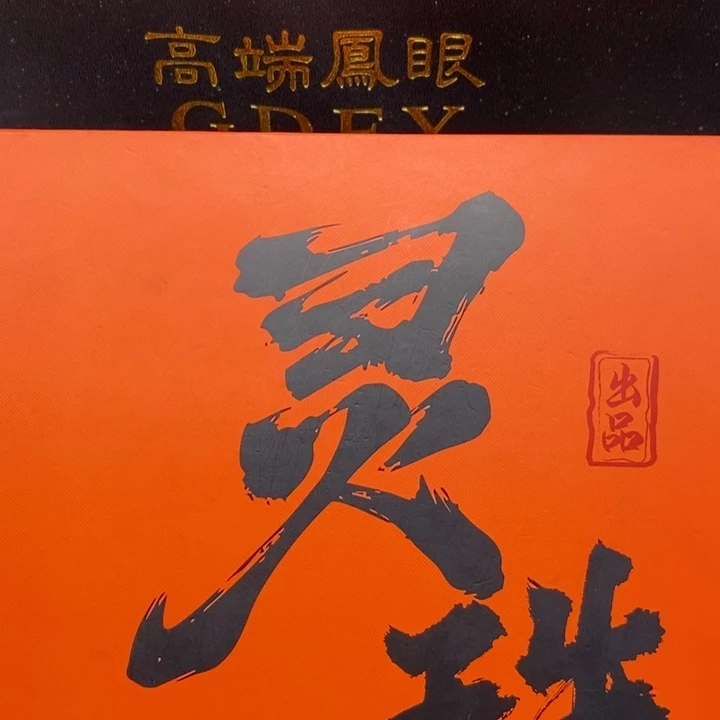 高端鳳眼
GDFY
灵
出品
珠